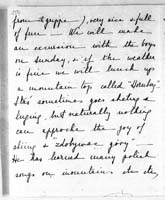 from Gruppe —), very nice & full
of fun — We will make
an excursion with the boys
on Sunday, & if the weather
is fine we will lunch up
a mountain top, called "
She sometimes goes skating &
luging, but naturally nothing
can approche the joy of
skiing & zdobywac gory —
He has learned many polish
songs on mountains, etc etc,